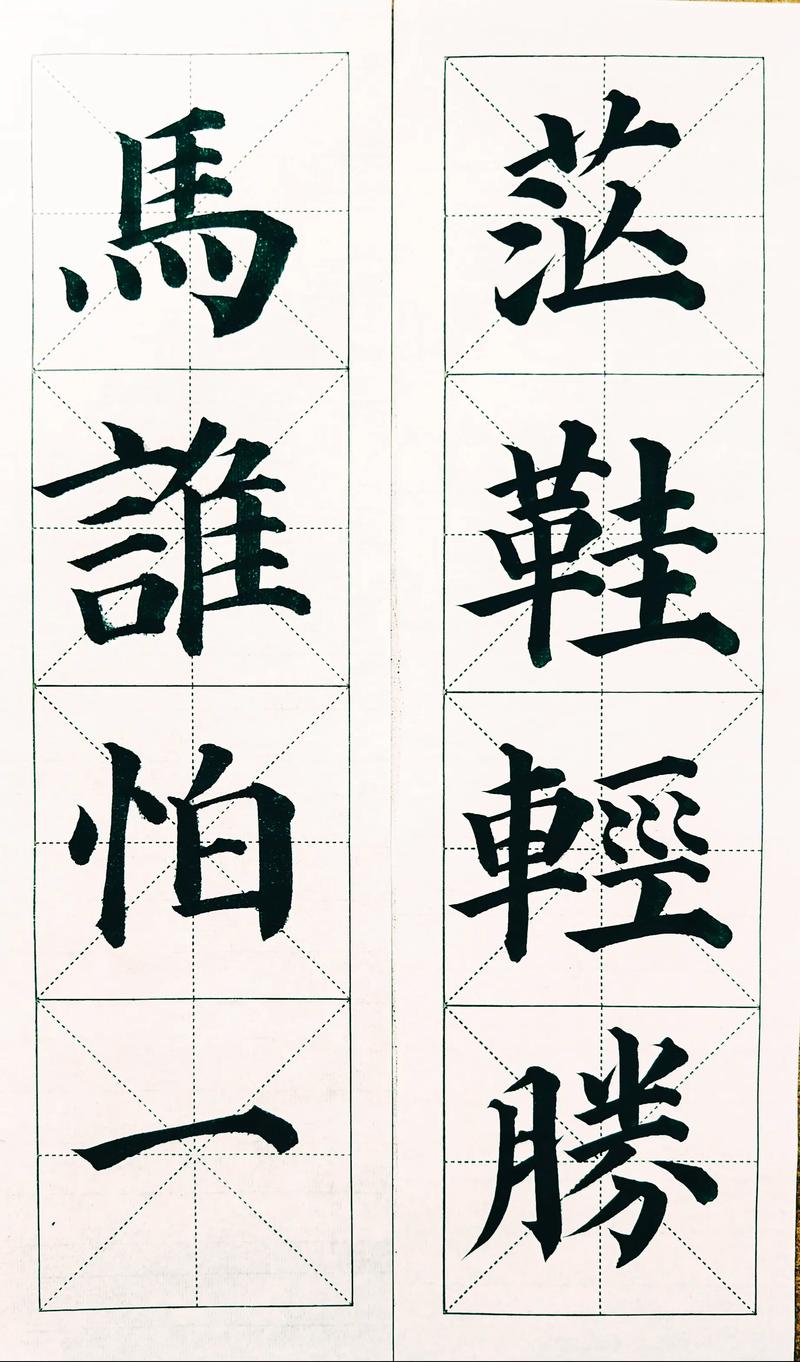 茫鞋輕勝
馬誰怕一